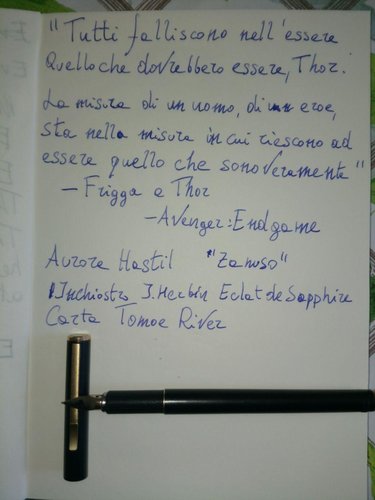 "Tutti falliscono nell'essere
Quello che dovrebbero essere, Thor.
La misura di un uomo, di un eroe,
sta nella misura in cui riescono ad
essere quello che sono veramente"
— Frigga a Thor
— Avenger: Endgame
Aurora Hastil "Zanuso"
Inchiostro J. Herbin Eclat de Sapphire
Carta Tomoe River